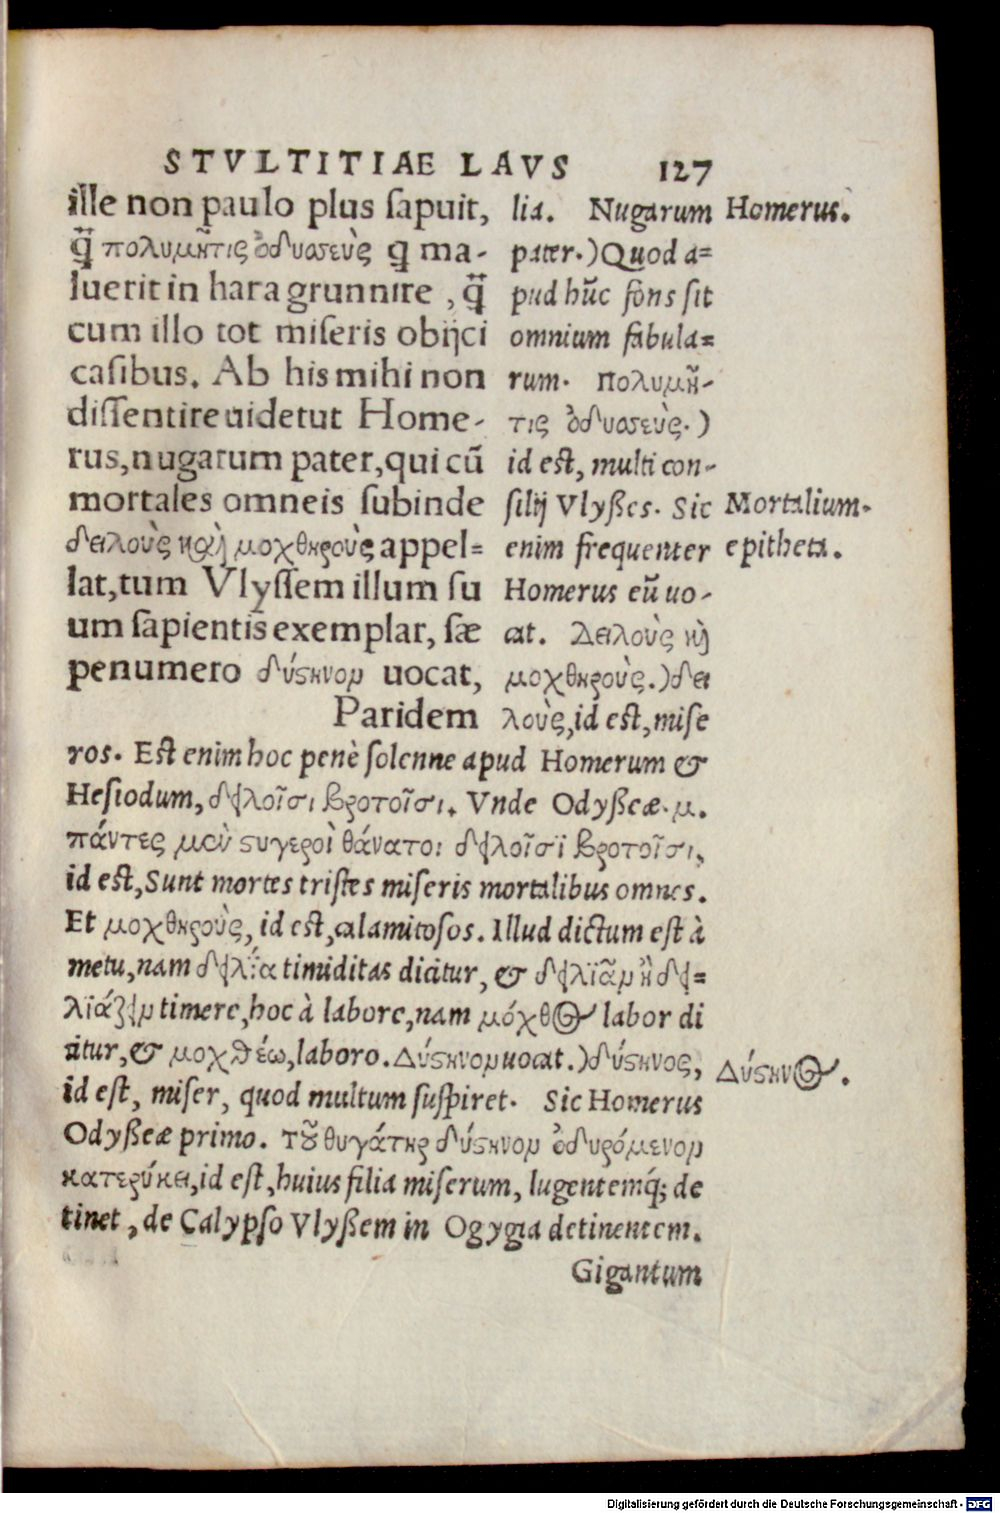 STVLTITIAE LAVS 127
ille non paulo plus ſapuit,
q̃ πολυμῆτις ὀδυσσεὺς q ma-
luerit in hara grunnire, q̃
cum illo tot miſeris obijci
caſibus. Ab his mihi non
diſſentire uidetut Home-
rus, nugarum pater, qui cũ
mortales omneis ſubinde
δειλοὺς καὶ μοχθηροὺς appel=
lat, tum Vlyſſem illum ſu
um ſapientis̃ exemplar, ſæ
penumero δύςηνον uocat,
Paridem
lia. Nugarum
pater.) Quod a=
pud hũc fons ſit
omnium fabula=
rum. πολυμῆ-
τις ὀδυσσεὺς.)
id eſt, multi con-
ſilij Vlyßes. Sic
enim frequenter
Homerus eũ uo-
cat. Δειλοὺς καὶ
μοχθηροὺς.) δει
λοὺς, id eſt, miſe
ros. Eſt enim hoc penè ſolenne apud Homerum &
Heſiodum, δειλοῖσι βροτοῖσι. Vnde Odyßeæ. μ.
πάντες μὲν ςυγεροὶ θάνατοι δειλοῖσϊ βροτοῖσι,
id eſt, Sunt mortes triſtes miſeris mortalibus omnes.
Et μοχθηροὺς, id eſt, calamitoſos. Illud dictum eſt à
metu, nam δειλία timiditas dicitur, & δειλϊᾶν ἢ δει=
λϊάζειν timere, hoc à labore, nam μόχθος labor di
citur, & μοχθέω, laboro. Δύςηνον uocat.) δύςηνος,
id eſt, miſer, quod multum ſuſpiret. Sic Homerus
Odyßeæ primo. τοῦ θυγάτηρ δύςηνον ὀδυρόμενον
κατερύκει, id eſt, huius filia miſerum, lugentemq́; de
tinet, de Calypſo Vlyßem in Ogygia detinentem.
Gigantum
Homerus.
Mortalium
epitheta.
Δύςηνος.
Digitalisierung gefördert durch die Deutsche Forschungsgemeinschaft - DFG